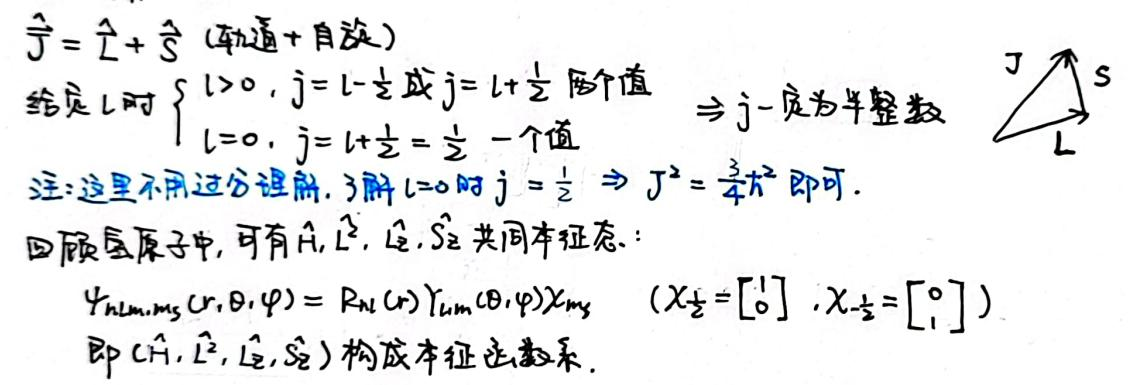 $\hat{\vec{J}} = \hat{\vec{L}} + \hat{\vec{S}}$ (轨道+自旋)
给定 l 时 { l>0, j=l-½ 或 j=l+½ 两个值
l=0, j=l+½=½ 一个值
⇒ j一定为半整数
J S L
注:这里不用过分理解,了解 l=0 时 j=½ ⇒ J²=¾ħ² 即可.
回顾氢原子中,可有 $\hat{H}, \hat{L}^2, \hat{L}_z, \hat{S}_z$ 共同本征态:
$\psi_{nlm,m_s}(r,\theta,\varphi) = R_{nl}(r)Y_{lm}(\theta,\varphi)\chi_{m_s}$ ($\chi_{\frac{1}{2}}=\begin{bmatrix}1\\0\end{bmatrix}, \chi_{-\frac{1}{2}}=\begin{bmatrix}0\\1\end{bmatrix}$)
即 ($\hat{H}, \hat{L}^2, \hat{L}_z, \hat{S}_z$) 构成本征函数系.